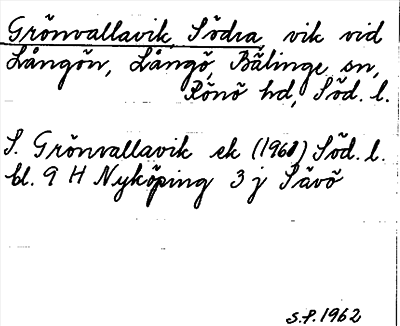 Grönvallavik, Södra, vik vid
Långön, Långö, Bälinge sn,
Rönö hd, Söd. l.
S. Grönvallavik ek (1960) Söd. l.
bl. 9 H Nyköping 3 j Sävö
S.P. 1962